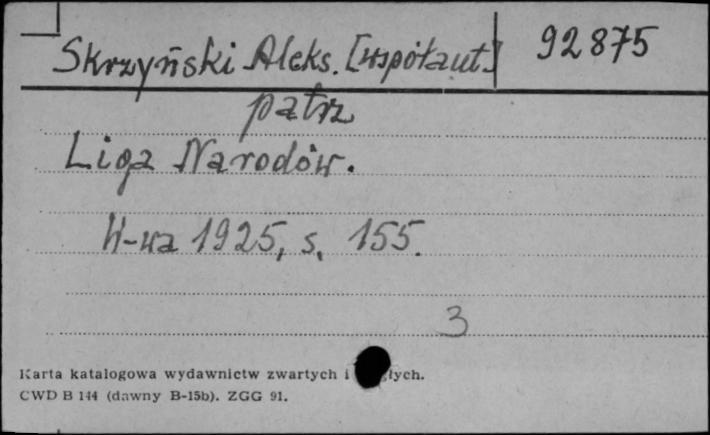 Skrzyński Aleks. [współaut.] 92875
patrz
Liga Narodów.
W-wa 1925, s. 155.
3
Karta katalogowa wydawnictw zwartych i
CWD B 144 (dawny B-15b). ZGG 91.